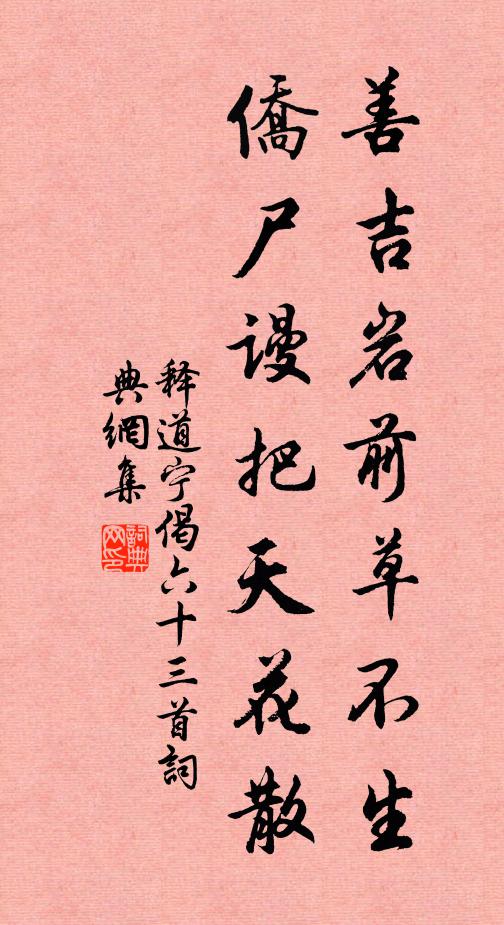 善吉岩前草不生
僑尸谩把天花散
释道宁偈六十三首詞
典網集
詞典网印